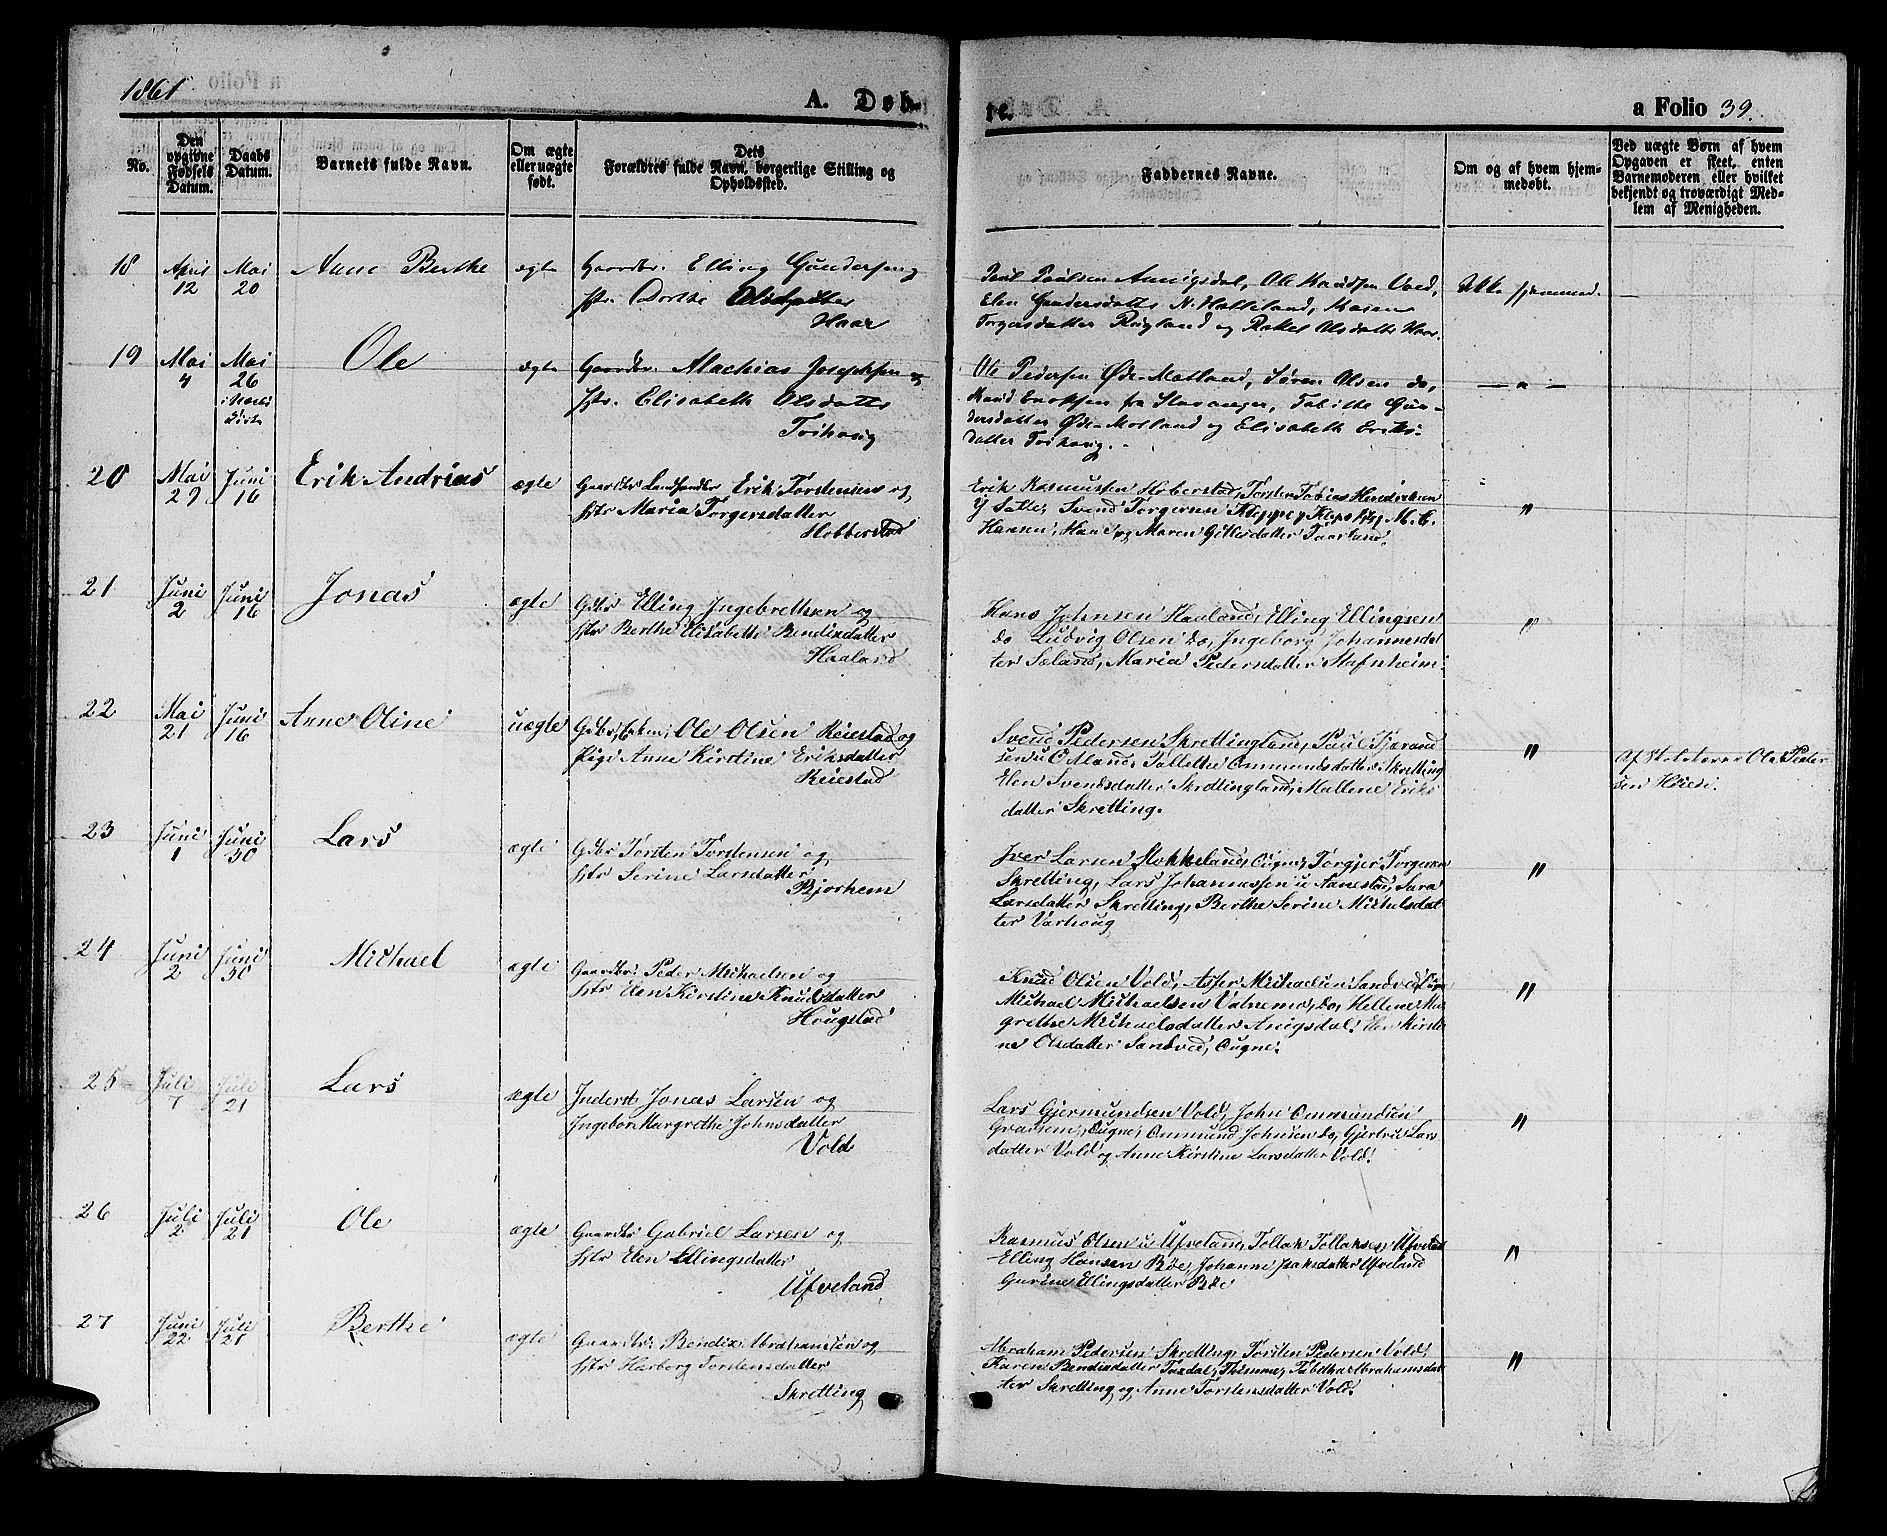 1861
A. Døb-
te.
a Folio 39.
No.
Den opgivne Fødsels Datum.
Daabs Datum.
Barnets fulde Navn.
Om ægte eller uægte født.
Forældres fulde Navn, borgerlige Stilling og Opholdssted.
Dets
Faddernes Navne.
Om og af hvem hjem-
medøbt.
Ved uægte Børn af hvem
Opgaven er skeet, enten
Barnemoderen eller hvilket
bekjendt og troværdigt Med-
lem af Menigheden.
18 April 12 Mai 20 Anne Berthe ægte Gaardbr. Elling Gundersen og
Hstr. Dorthe Olsdatter
Haar
Ole Knudsen Vold,
Elen Gundersdatter N. Hatleland, Karen
Torgersdatter Rugland og Rakel Olsdatter Haar.
Ikke hjemmed.
19 Mai 4 Mai 26 Ole ægte Gaardbr. Mathias Josephsen og
Hstr. Elisabeth Olsdatter
Tvihaug
Ole Pedersen Øde-Motland, Søren Olsen do,
fra Stavanger, Tabithe Gun-
dersdatter Øde-Motland og Elisabeth Eriks-
datter Tvihaug. -
— " —
20 Mai 29 Juni 16 Erik Andrias ægte Gaardbr Landhandler Erik Torstensen og
Hstr Maria Torgersdatter
Hobberstad
Erik Rasmussen Hoberstad, Torsten Tobias Hendriksen
Svend Torgersen Kleppe, M. C.
Hansen, Hane og Maren Gitlesdatter Taarland.
"
21 Juni 2 Juni 16 Jonas ægte Gdbr Elling Ingebrethsen og
Hstr Berthe Elisabeth Bendixdatter
Haaland
Hans Johnsen Haaland, Elling Ellingsen
do Ludvig Olsen do, Ingeborg Johannesdat
ter Sæland, Maria Pedersdatter Stafnheim.
"
22 Mai 21 Juni 16 Anne Oline uægte Ole Olsen Reiestad og
Pige Anne Kirstine Eriksdatter
Reiestad
Svend Pedersen Skrettingland, Paul Tjerand
sen Tallethe Ommundsdatter Skretting
Elen Svendsdatter Skrettingland, Mallene Eriks
datter Skretting.
"
Af Skolelærer Ole Peder
sen Høiesi.
23 Juni 1 Juni 30 Lars ægte Gdbr Torsten Torstensen og
Hstr Serine Larsdatter
Bjorhem
Iver Larsen Stokkeland, Ougne, Torgjer Torgersen
Skretting, Lars Johannessen u Aanestad, Sara
Larsdatter Skretting, Berthe Serine Michelsdat
ter Varhoug
"
24 Juni 2 Juni 30 Michael ægte Gaardbr: Peder Michaelsen og
Hstr Elen Kirstine Knudsdatter
Hougstad
Knud Olsen Vold, Asser Michaelsen Sandved
Michael Michaelsen do, Hellene Mar
grethe Michaelsdatter Elen Kirsti
ne Olsdatter Sandved, Ougne.
"
25 Juli 7 Juli 21 Lars ægte Inderst Jonas Larsen og
Ingebor Margrethe Johnsdatter
Vold
Lars Gjermundsen Vold, John Ommundsen
Graasem, Ougne, Ommund Johnsen do, Gjertrud Lars
datter Vold og Anne Kirstine Larsdatter Vold.
"
26 Juli 2 Juli 21 Ole ægte Gaardbr Gabriel Larsen og
Hstr Elen Ellingsdatter
Ufveland
Rasmus Olsen u Ufveland, Tollak Tollaksen, Ufveland
Elling Hansen Bøe, Johanne Isaksdatter Ufveland
Gurine Ellingsdatter Bøe
"
27 Juni 22 Juli 21 Berthe ægte Gaardbr: Bendix Abrahamsen og
Hstr Herborg Torstensdatter
Skretting
Abraham Pedersen Skretting, Torsten Pedersen Vold,
Karen Bendixdatter Thimme, Tabitha Abrahamsdat
ter Skretting og Anne Torstensdatter Vold.
"